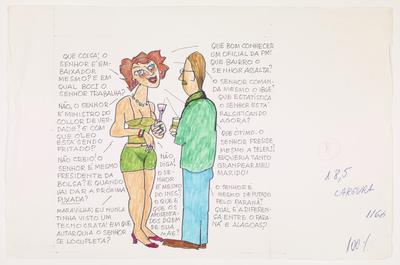 QUE COISA; O
SENHOR É EM-
BAIXADOR
MESMO? E EM
QUAL BOCI O
SENHOR TRABALHA?
NÃO, O SENHOR
É MINISTRO DO
COLLOR DE VER-
DADE? E COM
QUE ÓLEO
ESTÁ SENDO
FRITADO?
NÃO CREIO! O
SENHOR É MESMO
PRESIDENTE DA
BOLSA? E QUANDO
VAI DAR A PRÓXIMA
PUXADA?
MARAVILHA; EU NUNCA
TINHA VISTO UM
TECNOCRATA! EM QUE
AUTARQUIA O SENHOR
SE LOCUPLETA?
NÃO,
DIGA!
O SE-
NHOR
É MESMO
DO INPS?
O QUE É
QUE OS
APOSENTA-
DOS DIZEM
DE SUA
MÃE?
QUE BOM CONHECER
UM OFICIAL DA PM!
QUE BAIRRO O
SENHOR ASSALTA?
O SENHOR COMAN-
DA MESMO O IBGE?
QUE ESTATÍSTICA
O SENHOR ESTÁ
FALSIFICANDO
AGORA?
QUE ÓTIMO. O
SENHOR PRESIDE
MESMO A TELERJ?
EU QUERIA TANTO
GRAMPEAR MEU
MARIDO!
O SENHOR É
MESMO DEPUTADO
PELO PARANÁ?
QUAL É A DIFEREN-
ÇA ENTRE O PARA-
NÁ E ALAGOAS?
18,5
LARGURA
1166
100%